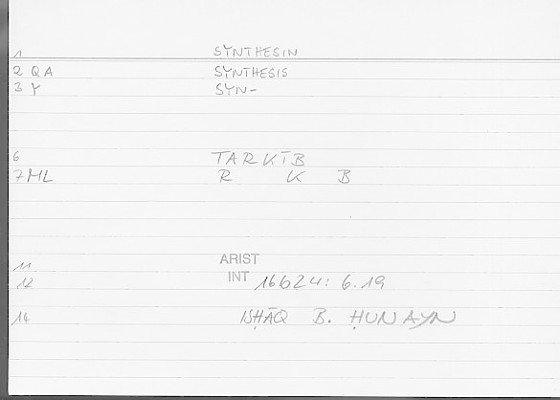 1 SYNTHESIN
2 QA SYNTHESIS
3 Y SYN-
6 TARKĪB
7 ML R K B
11 ARIST
12 INT 16b24: 6.19
14 ISḤĀQ B. ḤUNAYN